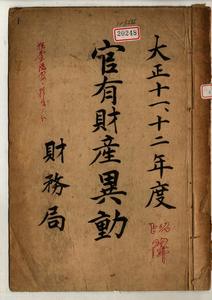 20248
大正十一、十二年度
官有財産異動
財務局